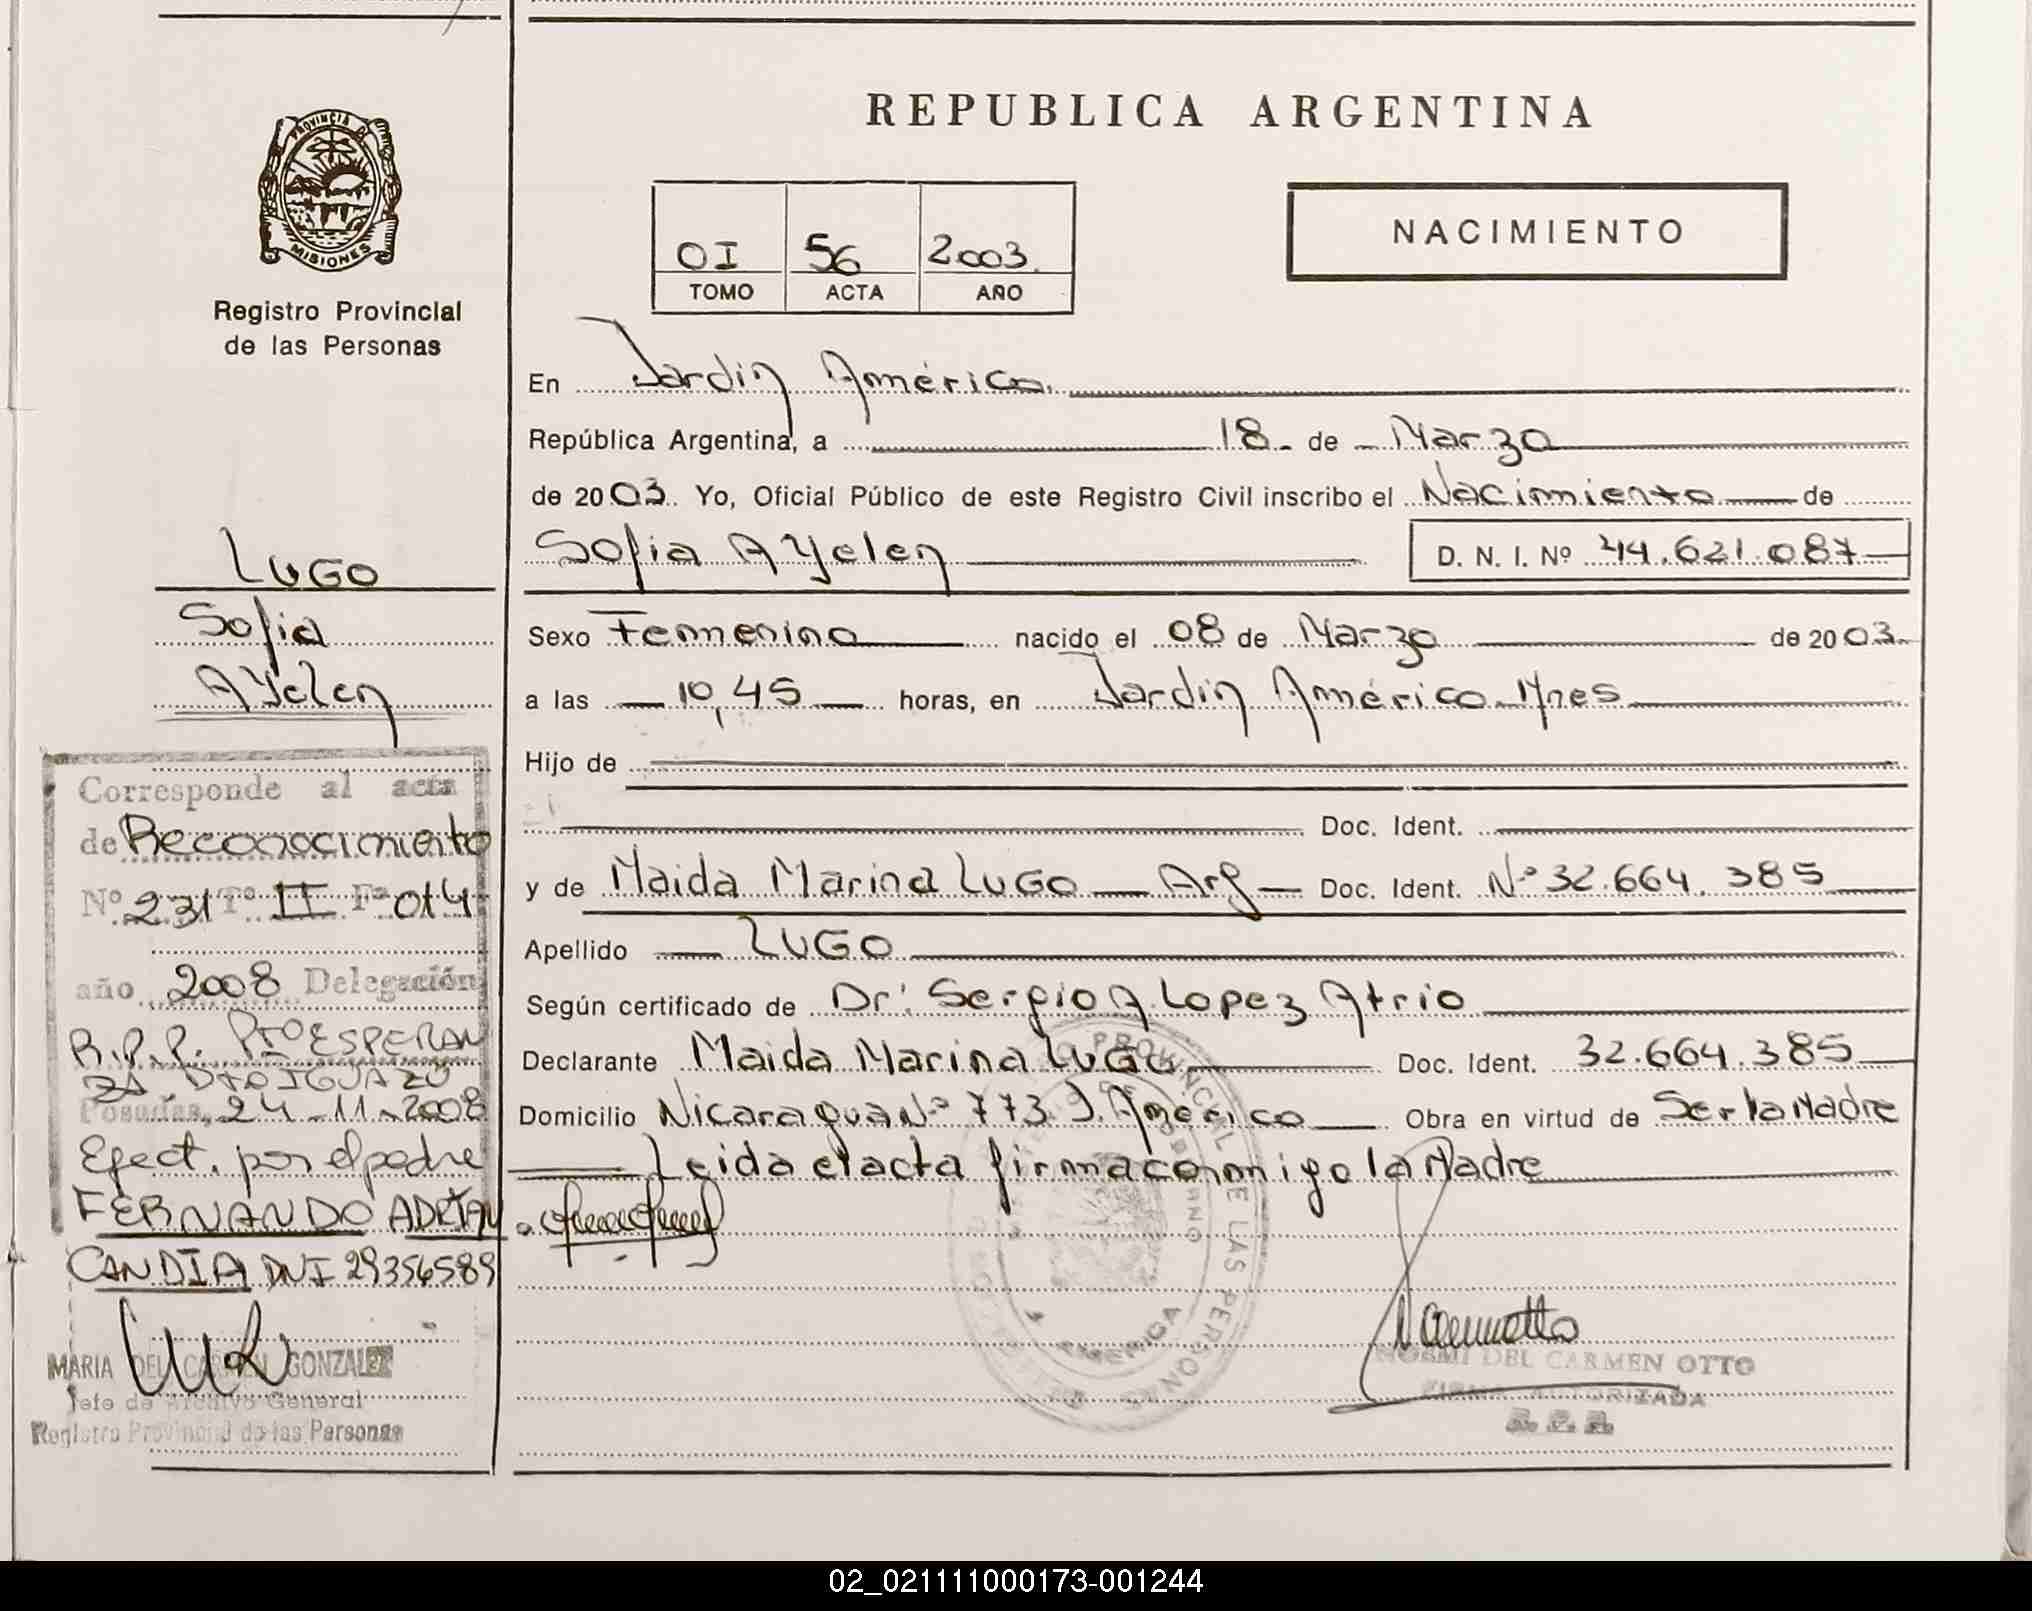 PROVINCIA DE
MISIONES
Registro Provincial
de las Personas
LUGO
Sofia
Ayelen
Corresponde al acta
de Reconocimiento
Nº 231 Tº II Fº 014
año 2008 Delegación
R.P.P. Pto ESPERAN
ZA. DTO IGUAZÚ
Posadas, 24-11-2008
Efect. por el padre
FERNANDO ADRIAN
CANDIA DNI 29356589
MARIA DEL CARMEN GONZALEZ
Jefe de Archivo General
Registro Provincial de las Personas
REPUBLICA ARGENTINA
OI 56 2003.
TOMO ACTA AÑO
NACIMIENTO
En Jardin América.
República Argentina, a 18 de Marzo
de 2003. Yo, Oficial Público de este Registro Civil inscribo el Nacimiento de
Sofia Ayelen D. N. I. Nº 44.621.087
Sexo Femenino nacido el 08 de Marzo de 2003
a las 10,45 horas, en Jardin América. Mnes
Hijo de
Doc. Ident.
y de Maida Marina LUGO Arg Doc. Ident. Nº 32.664.385
Apellido LUGO
Según certificado de Dr. Sergio A. Lopez Atrio
Declarante Maida Marina LUGO Doc. Ident. 32.664.385
Domicilio Nicaragua Nº 773 J. América Obra en virtud de Ser la Madre
Leida el acta firma conmigo la Madre
NOEMI DEL CARMEN OTTO
FIRMA AUTORIZADA
R. P. P.
02_021111000173-001244